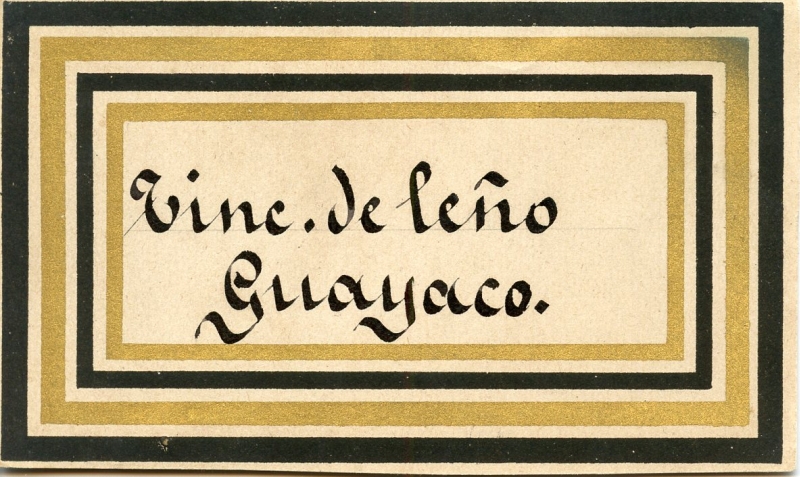 Tinc. de leño
Guayaco.